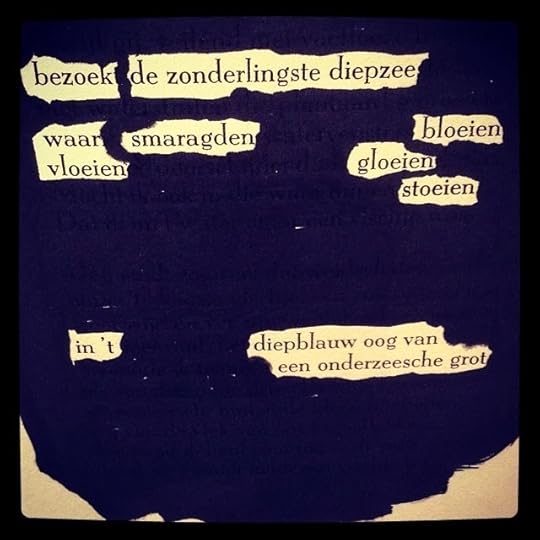 bezoekt de zonderlingste diepzee
waar smaragden bloeien
vloeien gloeien
stoeien
in 't diepblauw oog van
een onderzeesche grot